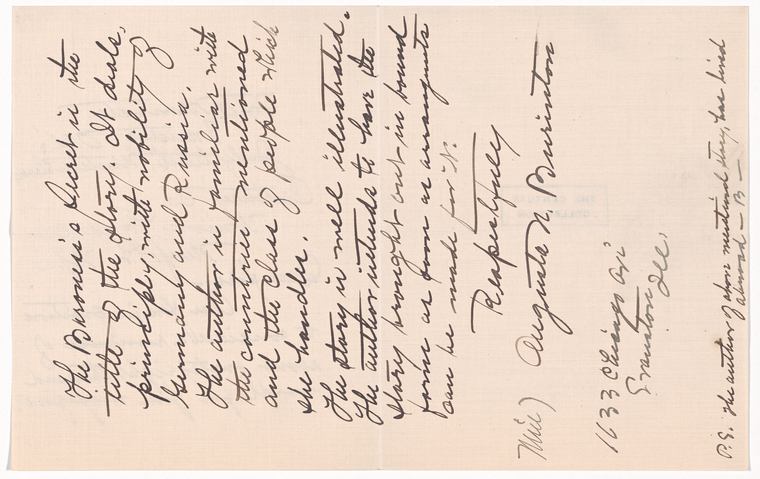 The Baroness's Secret is the
title of the story. It deals,
principly, with nobility of
Germany and Russia.
The author is familiar with
the countries mentioned
and the class of people which
she handles.
The story is well illustrated.
The author intends to have the
story brought out in bound
form as soon as arrangmts
can be made for it.
Respectfully
(Mrs) Augusta N
1633 Chicago Av
Evanston Ill.
P.S. The author of above mentioned story, has lived
abroad — B —